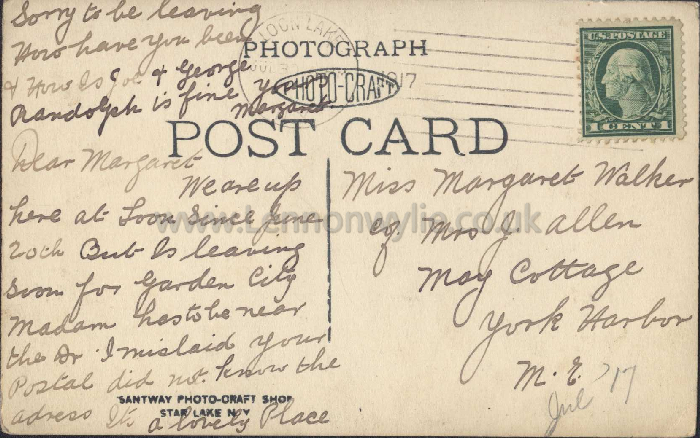 Sorry to be leaving
How have you been
& How Is Joe & George
Randolph is fine
Margaret
LOON LAKE
PHOTOGRAPH
PHOTO-CRAFT
1917
U.S. POSTAGE
1 CENT 1
POST CARD
Dear Margaret
We are up
here at Loon Since June
20th But Is leaving
soon for Garden City
Madam has to be near
the Dr I mislaid your
Postal did not know the
adress Its a lovely Place
SANTWAY PHOTO-CRAFT SHOP
STAR LAKE N.Y.
Miss Margaret Walker
Mrs J Allen
May Cottage
York Harbor
M. E.
Jul '17
www.Lennonwylie.co.uk